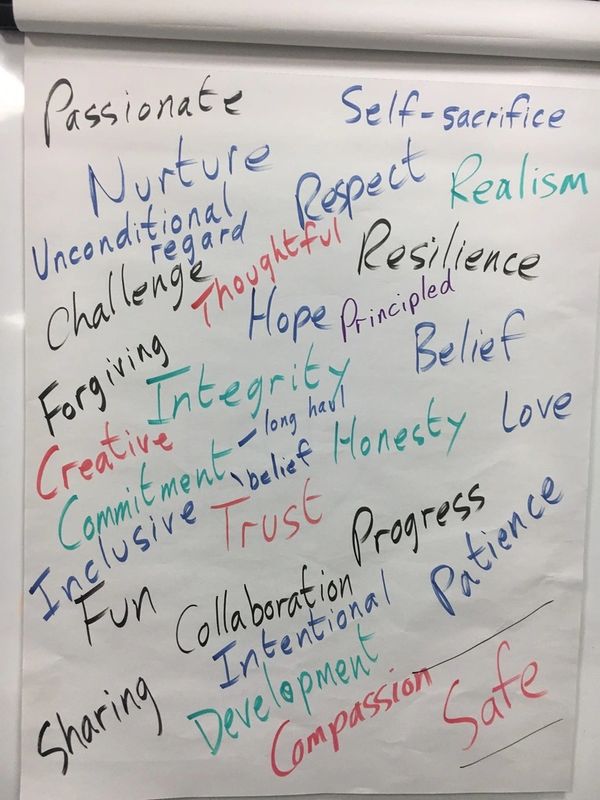 Passionate
Self-sacrifice
Nurture
Respect
Realism
Unconditional
regard
Thoughtful
Resilience
Challenge
Hope
Principled
Belief
Forgiving
Integrity
Creative
Commitment
– long haul
\ belief
Honesty
Love
Inclusive
Trust
Progress
Patience
Fun
Collaboration
Intentional
Development
Sharing
Compassion
Safe